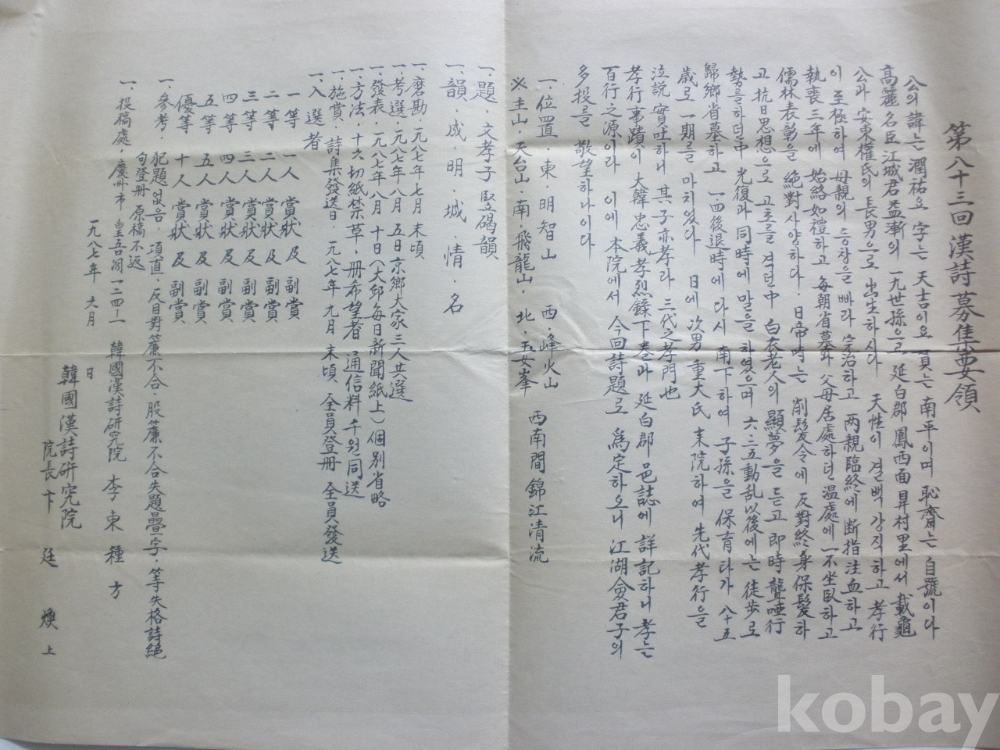 第八十三回漢詩募集要領
公의 諱는 潤祐요 字는 天吉이요 貫은 南平이며 恥齋는 自號이다
高麗名臣江城君益漸의 一九世孫으로 延白郡鳳西面 昇村里에서 載龜
公과 安東權氏의 長男으로 出生하시다 天性이 결백 강직하고 孝行
이 至極하여 母親의 등창을 빠라 完治하고 两親臨終에 断指注血하고
執喪三年에 始終如禮하고 每朝省墓와 父母居處하던 温處에 一不坐臥하고
儒林表彰을 絶對사양하다 日帝時는 削髮令에 反對終身保髮하
고 抗日思想으로 고초를 겪던中 白衣老人의 顯夢을 듣고 即時聾啞行
勢을하던中 光復과 同時에 말을 하였으며 六二五動乱以後에는 徒步로
歸鄉省墓하고 一四後退時에 다시 南下하여 子孫을 保育타가 八十五
歲로 一期을 마치었다 日에 次男重大氏 来院하여 先代孝行을
泣説實呼하니 其子亦孝라 三代之孝門也
孝行事蹟이 大韓忠義孝烈錄下卷과 延白郡邑誌에 詳記하니 孝는
百行之源이라 이에 本院에서 今回詩題로 爲定하오니 江湖僉君子의
多投를 敬望하나이다
一. 位置. 東. 明智山 西. 峰火山 西南間錦江清流
※主山. 天台山. 南. 飛龍山. 北. 玉女峯
一. 題. 文孝子竪碣韻
一. 韻. 成. 明. 城. 情. 名
一. 磨勘. 一九八七年七月末頃
一. 考選. 一九八七年八月五日京鄉大家三人共選
一. 發表. 一九八七年八月十日(大邱每日新聞紙上)個別省略
一. 方法. 十六切紙禁草. 册布望者 通信料 千원同送
一. 施賞. 詩集發送日. 一九八七年九月末頃 全員登册 全員發送
一. 入選者
一等 一人 賞狀及 副賞
二等 二人 賞狀及 副賞
三等 三人 賞狀及 副賞
四等 四人 賞狀及 副賞
五等 五人 賞狀及 副賞
優等 十人 賞狀及 副賞
一. 參考. 犯題 誤音. 項直. 反目對簾不合. 股簾不合失題疊字. 等失格詩絕
勿登册 原稿不返
一. 投稿處. 慶州市. 皇吾洞一三四-1 韓國漢詩研究院 李東種方
一九八七年 六月 日
韓國漢詩研究院
院長 卞 廷 煥 上
kobay